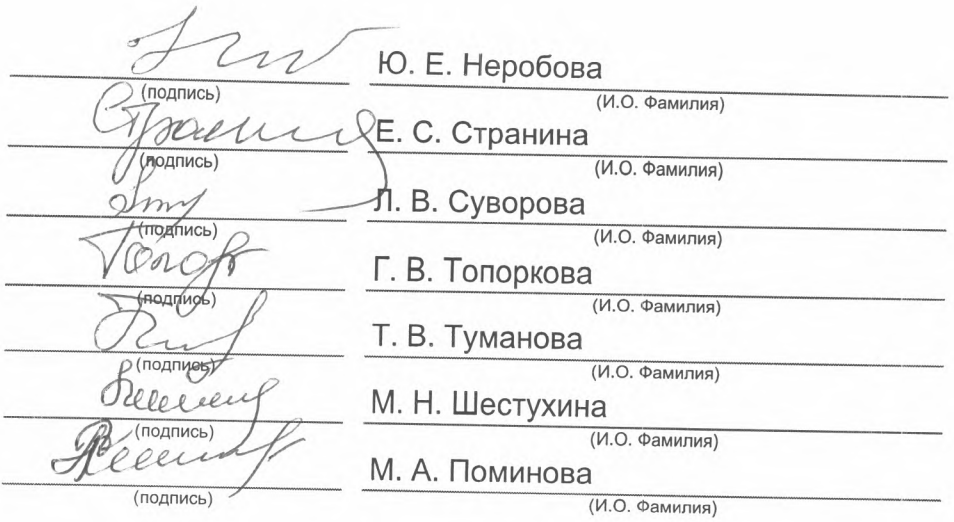 Ю. Е. Неробова
(подпись) (И.О. Фамилия)
Е. С. Странина
(подпись) (И.О. Фамилия)
Л. В. Суворова
(подпись) (И.О. Фамилия)
Г. В. Топоркова
(подпись) (И.О. Фамилия)
Т. В. Туманова
(подпись) (И.О. Фамилия)
М. Н. Шестухина
(подпись) (И.О. Фамилия)
М. А. Поминова
(подпись) (И.О. Фамилия)